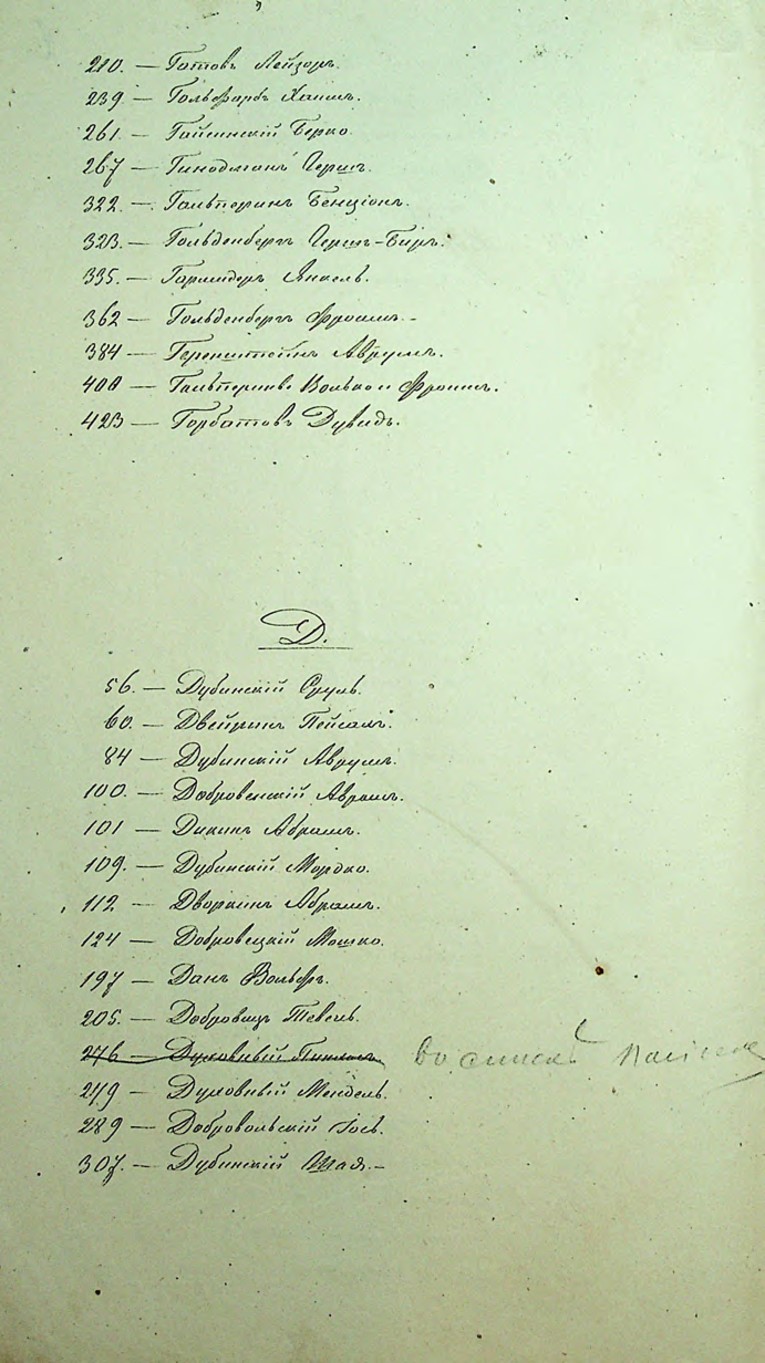 210. — Готовъ Лейзоръ.
239 — Гольфарбъ Хаимъ.
261. — Гайсинскій Берко
267 — Гинодманъ Гершъ.
322. — Гальперинъ Бенціонъ.
323. — Гольденбергъ Гершъ-Беръ.
335. — Янкель.
362 — Гольденбергъ Фроимъ —
384 — Геренштейнъ Аврумъ.
400 — Гальперинъ Волько и Фроимъ.
423 — Горбатовъ Дувидъ.
Д.
56. — Дубинскій Сруль.
60. — Двейринъ Пейсахъ.
84 — Дубинскій Аврумъ.
100. — Добровенскій Авраамъ.
101 — Дикинъ Абрамъ.
109. — Дубинскій Мордко.
112 — Дворкинъ Абрамъ.
124 — Добровецкій Мошко.
197 — Данъ Вольфъ.
205. — Тевель.
276 — Духовный Пинхасъ во
279 — Духовный Мендель.
289 — Добровольскій Іось.
307. — Дубинскій Шая. —